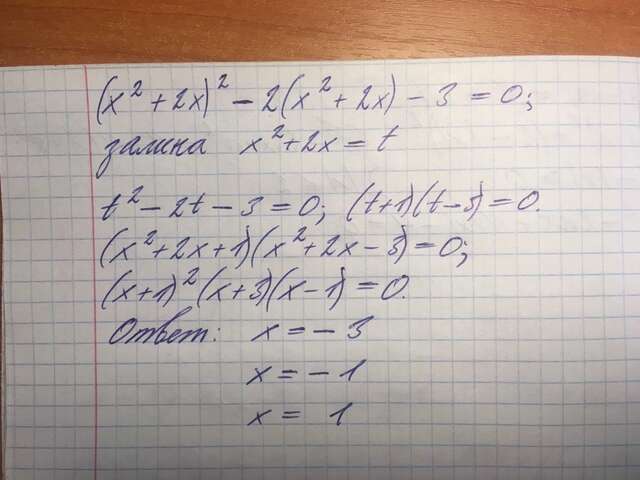 (x² + 2x)² - 2(x² + 2x) - 3 = 0;
замена x² + 2x = t
t² - 2t - 3 = 0; (t+1)(t-3) = 0.
(x² + 2x + 1)(x² + 2x - 3) = 0;
(x+1)² (x+3)(x-1) = 0.
Ответ: x = - 3
x = - 1
x = 1